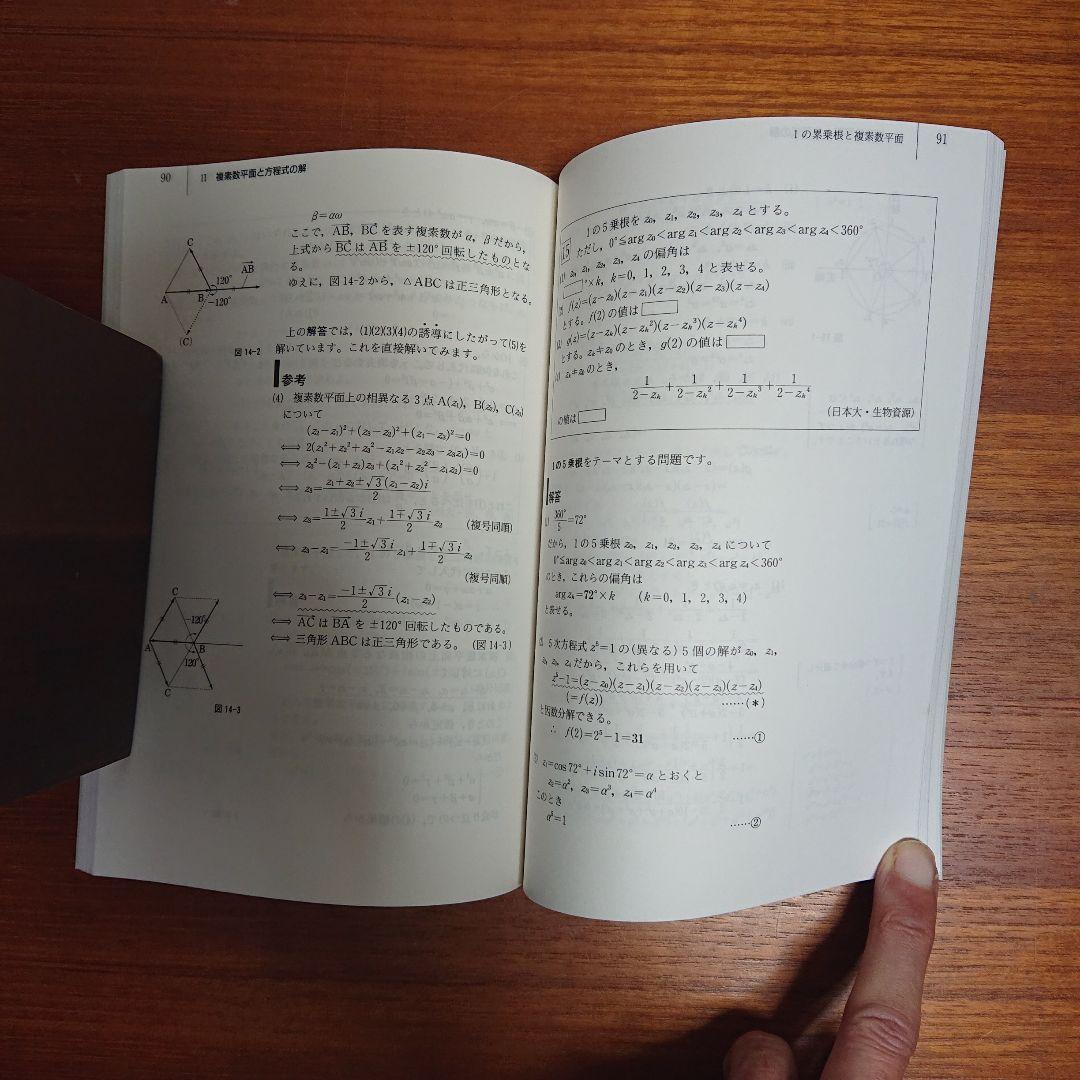 90 11 複素数平面と方程式の解
β=αω
ここで，AB，BC を表す複素数が α，β だから，
上式から BC は AB を ±120° 回転したものとな
る。
ゆえに，図 14-2 から，△ABC は正三角形となる。
C
AB
120°
A
B
-120°
(C)
図 14-2
上の解答では，(1)(2)(3)(4)の誘導にしたがって(5)を
解いています。これを直接解いてみます。
参考
(4) 複素数平面上の相異なる 3 点 A(z₁)，B(z₂)，C(z₃)
について
(z₂−z₁)²+(z₃−z₂)²+(z₁−z₃)²=0
⟺ 2(z₁²+z₂²+z₃²−z₁z₂−z₂z₃−z₃z₁)=0
⟺ z₃²−(z₁+z₂)z₃+(z₁²+z₂²−z₁z₂)=0
⟺ z₃=(z₁+z₂±√3(z₁−z₂)i)/2
⟺ z₃=(1±√3i)/2 z₁+(1∓√3i)/2 z₂ (複号同順)
⟺ z₃−z₁=(−1±√3i)/2 z₁+(1∓√3i)/2 z₂
(複号同順)
⟺ z₃−z₁=(−1±√3i)/2 (z₁−z₂)
⟺ AC は BA を ±120° 回転したものである。
⟺ 三角形 ABC は正三角形である。(図 14-3)
C
-120°
A
B
120°
C
図 14-3
1 の累乗根と複素数平面 91
15
1 の 5 乗根を z₀，z₁，z₂，z₃，z₄ とする。
ただし，0°≦arg z₀<arg z₁<arg z₂<arg z₃<arg z₄<360°
z₀，z₁，z₂，z₃，z₄ の偏角は
°×k，k=0，1，2，3，4 と表せる。
f(z)=(z−z₀)(z−z₁)(z−z₂)(z−z₃)(z−z₄)
とする。f(2) の値は
g(z)=(z−zₖ)(z−zₖ²)(z−zₖ³)(z−zₖ⁴)
とする。zₖ≠z₀ のとき，g(2) の値は
zₖ≠z₀ のとき，
1/(2−zₖ)+1/(2−zₖ²)+1/(2−zₖ³)+1/(2−zₖ⁴)
の値は
(日本大・生物資源)
1 の 5 乗根をテーマとする問題です。
解答
360°/5=72°
だから，1 の 5 乗根 z₀，z₁，z₂，z₃，z₄ について
0°≦arg z₀<arg z₁<arg z₂<arg z₃<arg z₄<360°
のとき，これらの偏角は
arg zₖ=72°×k (k=0，1，2，3，4)
と表せる。
5 次方程式 z⁵=1 の(異なる) 5 個の解が z₀，z₁，
z₂，z₃，z₄ だから，これらを用いて
z⁵−1=(z−z₀)(z−z₁)(z−z₂)(z−z₃)(z−z₄)
(=f(z)) ……(＊)
と因数分解できる。
∴ f(2)=2⁵−1=31 ……①
z₁=cos 72°+i sin 72°=α とおくと
z₂=α²，z₃=α³，z₄=α⁴
このとき
α⁵=1 ……②